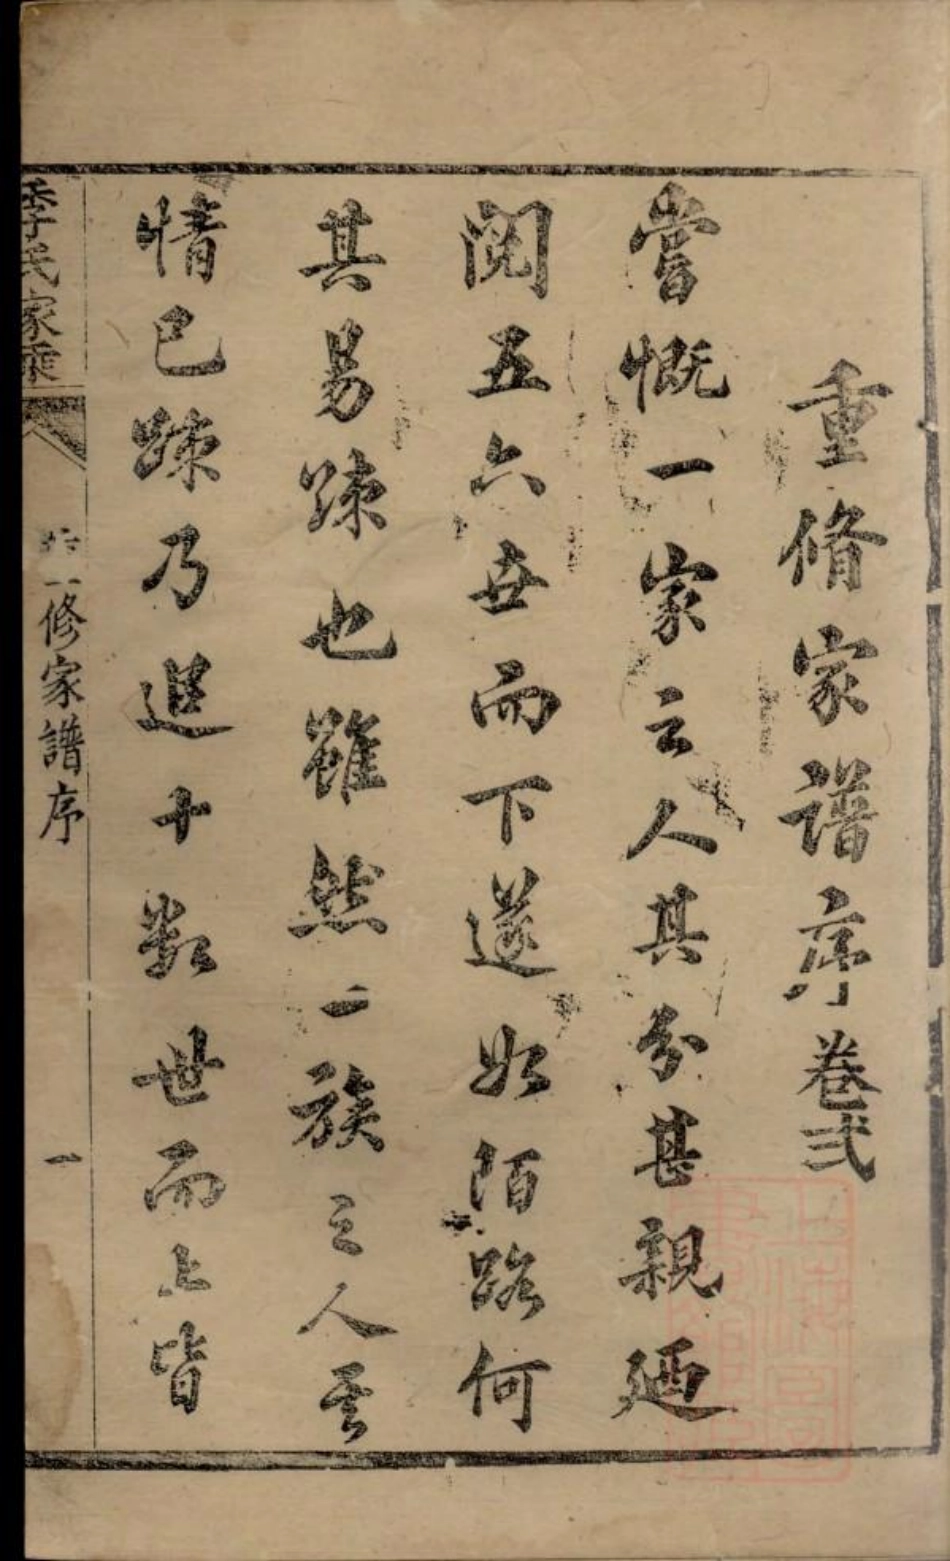 重脩家譜序卷弍
嘗慨一家云人其分甚親廼
閱五六世而下遂如陌路何
其易踈也雖然一族之人其
情已踈乃追十數世而上皆
季氏家乘
修家譜序
一